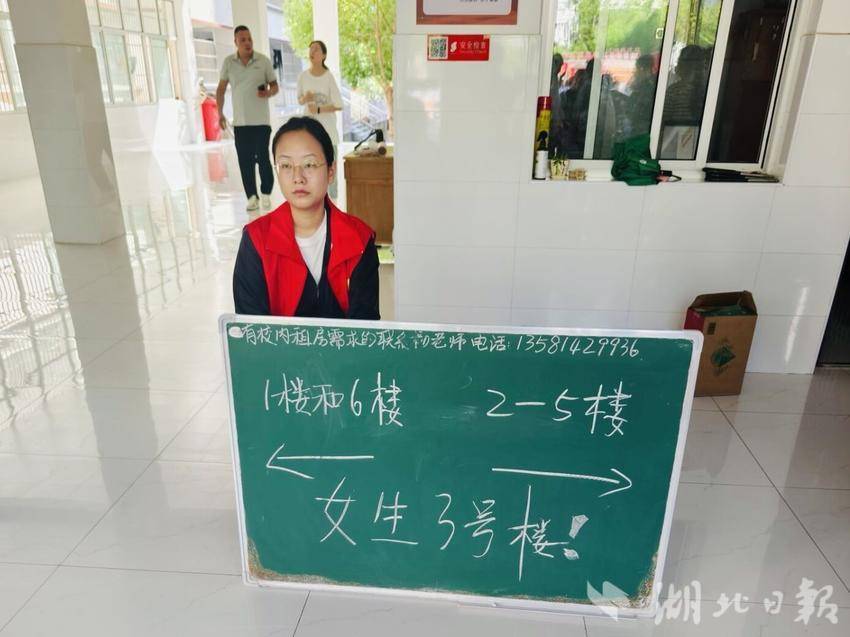 安全检查
有校内租房需求的联系 老师 电话:13581429936
1楼和6楼 2-5楼
女生3号楼!
湖北日报